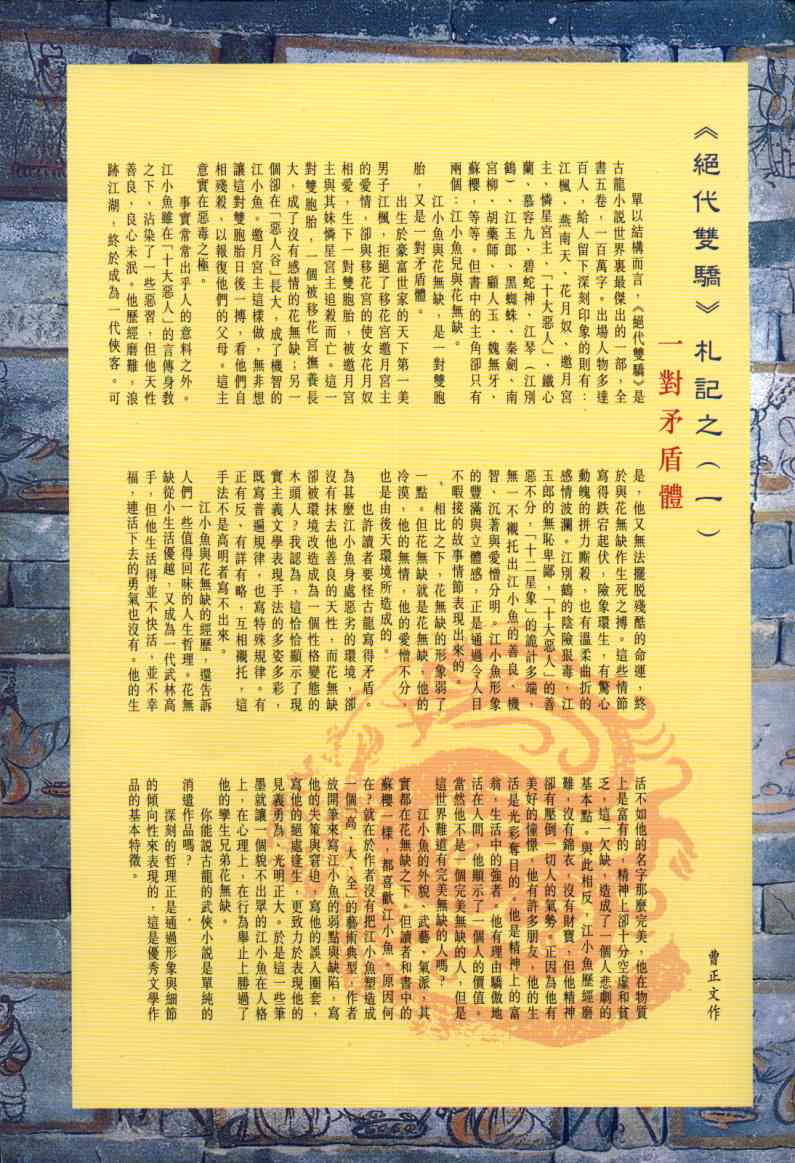 《絕代雙驕》札記之(一)
一對矛盾體
曹正文作
單以結構而言,《絕代雙驕》是
古龍小說世界裏最傑出的一部,全
書五卷,一百萬字。出場人物多達
百人,給人留下深刻印象的則有:
江楓、燕南天、花月奴、邀月宮
主、憐星宮主、「十大惡人」、鐵心
蘭、慕容九、碧蛇神、江琴(江別
鶴)、江玉郎、黑蜘蛛、秦劍、南
宮柳、胡藥師、顧人玉、魏無牙、
蘇櫻,等等。但書中的主角卻只有
兩個:江小魚兒與花無缺。
江小魚與花無缺,是一對雙胞
胎,又是一對矛盾體。
出生於豪富世家的天下第一美
男子江楓,拒絕了移花宮邀月宮主
的愛情,卻與移花宮的使女花月奴
相愛,生下一對雙胞胎,被邀月宮
主與其妹憐星宮主追殺而亡。這一
對雙胞胎,一個被移花宮撫養長
大,成了沒有感情的花無缺;另一
個卻在「惡人谷」長大,成了機智的
江小魚。邀月宮主這樣做,無非想
讓這對雙胞胎日後一搏,看他們自
相殘殺,以報復他們的父母。這主
意實在惡毒之極。
事實常常出乎人的意料之外。
江小魚雖在「十大惡人」的言傳身教
之下,沾染了一些惡習,但他天性
善良,良心未泯。他歷經磨難,浪
跡江湖,終於成為一代俠客。可
是,他又無法擺脫殘酷的命運,終
於與花無缺作生死之搏。這些情節
寫得跌宕起伏,險象環生,有驚心
動魄的拼力嘶殺,也有溫柔曲折的
感情波瀾。江別鶴的陰險狠毒,江
玉郎的無恥卑鄙,「十大惡人」的善
惡不分,「十二星象」的詭計多端,
無一不襯托出江小魚的善良、機
智、沉著與愛憎分明。江小魚形象
的豐滿與立體感,正是通過令人目
不暇接的故事情節表現出來的。
相比之下,花無缺的形象弱了
一點。但花無缺就是花無缺,他的
冷漠,他的無情,他的愛憎不分,
也是由後天環境所造成的。
也許讀者要怪古龍寫得矛盾。
為甚麼江小魚身處惡劣的環境,卻
沒有抹去他善良的天性,而花無缺
卻被環境改造成為一個性格變態的
木頭人?我認為,這恰恰顯示了現
實主義文學表現手法的多姿多彩,
既寫普遍規律,也寫特殊規律。有
正有反、有詳有略,互相襯托,這
手法不是高明者寫不出來。
江小魚與花無缺的經歷,還告訴
人們一些值得回味的人生哲理。花無
缺從小生活優越,又成為一代武林高
手,但他生活得並不快活,並不幸
福,連活下去的勇氣也沒有。他的生
活不如他的名字那麼完美,他在物質
上是富有的,精神上卻十分空虛和貧
乏,這一欠缺,造成了一個人悲劇的
基本點。與此相反,江小魚歷經磨
難,沒有錦衣,沒有財寶,但他精神
卻有壓倒一切人的氣勢,正因為他有
美好的憧憬,他有許多朋友,他的生
活是光彩奪目的,他是精神上的富
翁,生活中的強者,他有理由驕傲地
活在人間,他顯示了一個人的價值。
當然他不是一個完美無缺的人,但是
這世界難道有完美無缺的人嗎?
江小魚的外貌、武藝、氣派,其
實都在花無缺之下。但讀者和書中的
蘇櫻一樣,都喜歡江小魚。原因何
在?就在於作者沒有把江小魚塑造成
一個「高、大、全」的藝術典型,作者
放開筆來寫江小魚的弱點與缺陷,寫
他的失策與窘迫,寫他的誤入圈套,
寫他的絕處逢生,更致力於表現他的
見義勇為、光明正大。於是這一些筆
墨就讓一個貌不出眾的江小魚在人格
上,在心理上,在行為舉止上勝過了
他的孿生兄弟花無缺。
你能說古龍的武俠小說是單純的
消遣作品嗎?
深刻的哲理正是通過形象與細節
的傾向性來表現的,這是優秀文學作
品的基本特徵。